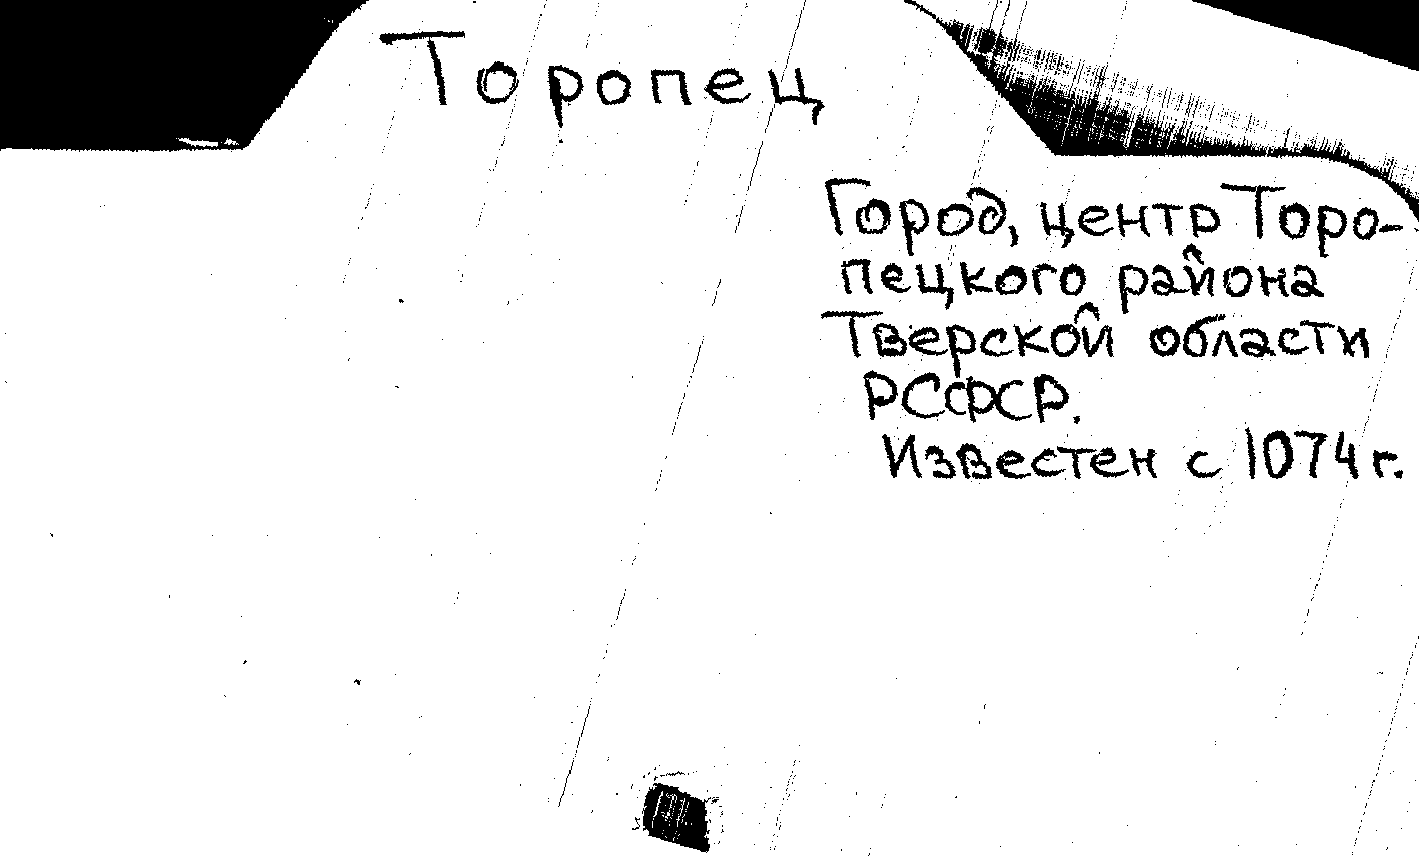 Торопец
Город, центр Торо-
пецкого района
Тверской области
РСФСР.
Известен с 1074 г.